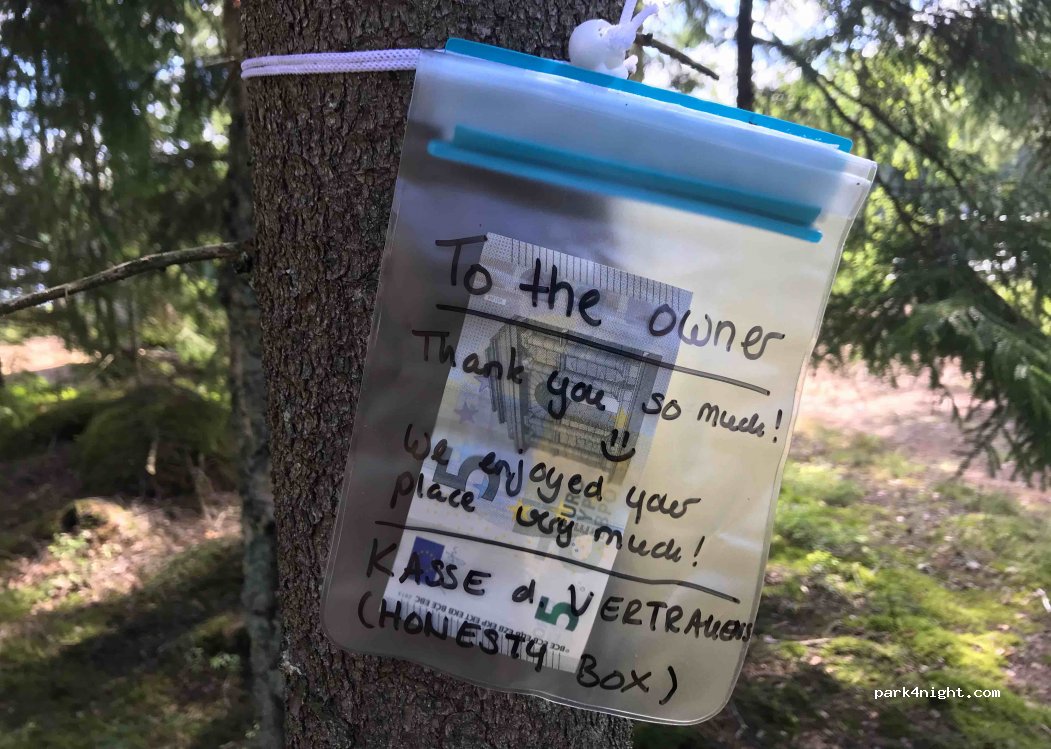 To the owner
Thank you so much!
We enjoyed your
place very much!
KASSE d. VERTRAUENS
(HONESTY BOX)
5
EURO
5
park4night.com